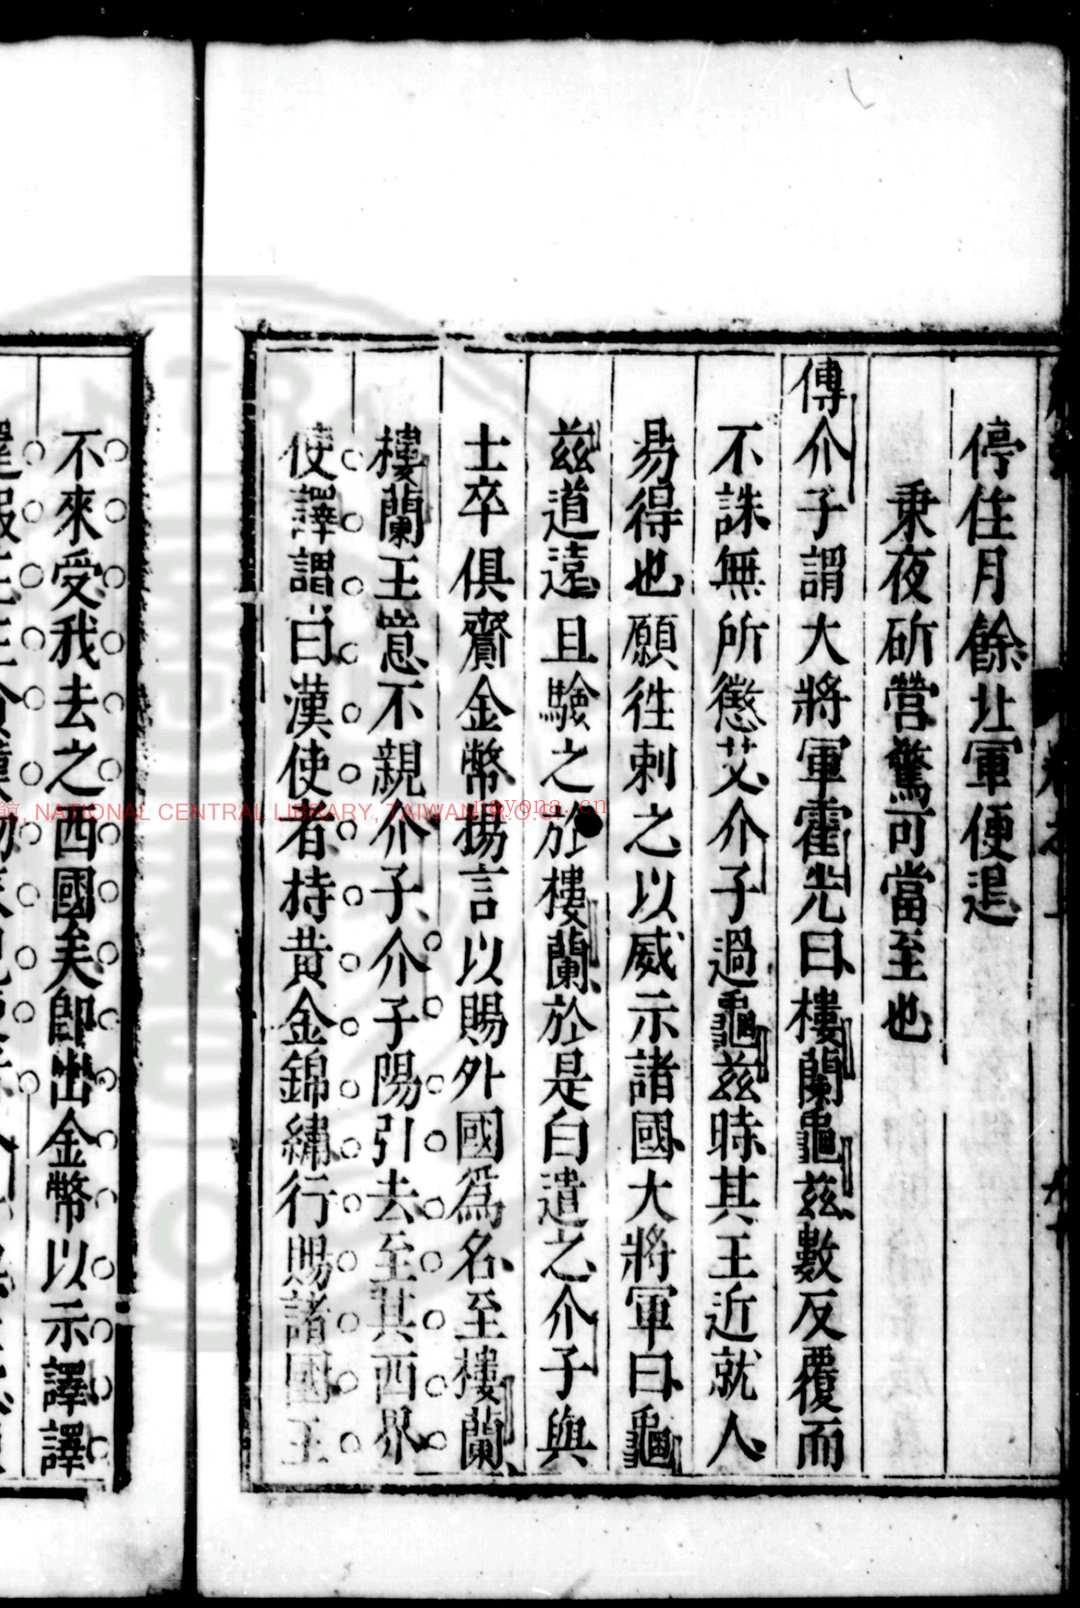 停住月餘北軍便退
乗夜斫營驚可當至也
傅介子謂大將軍霍光曰樓蘭龜茲數反覆而
不誅無所懲艾介子過龜茲時其王近就人
易得也願徃刺之以威示諸國大將軍曰龜
茲道遠且驗之於樓蘭於是白遣之介子與
士卒俱齎金幣揚言以賜外國爲名至樓蘭
樓蘭王意不親介子介子陽引去至其西界
使譯謂曰漢使者持黄金錦繡行賜諸國王
不來受我去之西國矣卽出金幣以示譯譯
館, NATIONAL CENTRAL LIBRARY, TAIWAN, R.O.C
nayona.cn